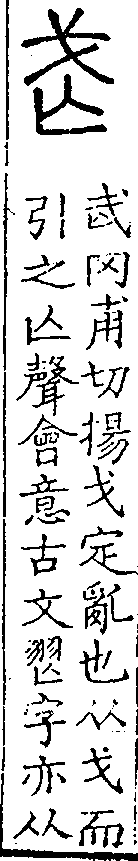 武网甫切揚戈定亂也从戈而
引之亾聲會意古文字亦从